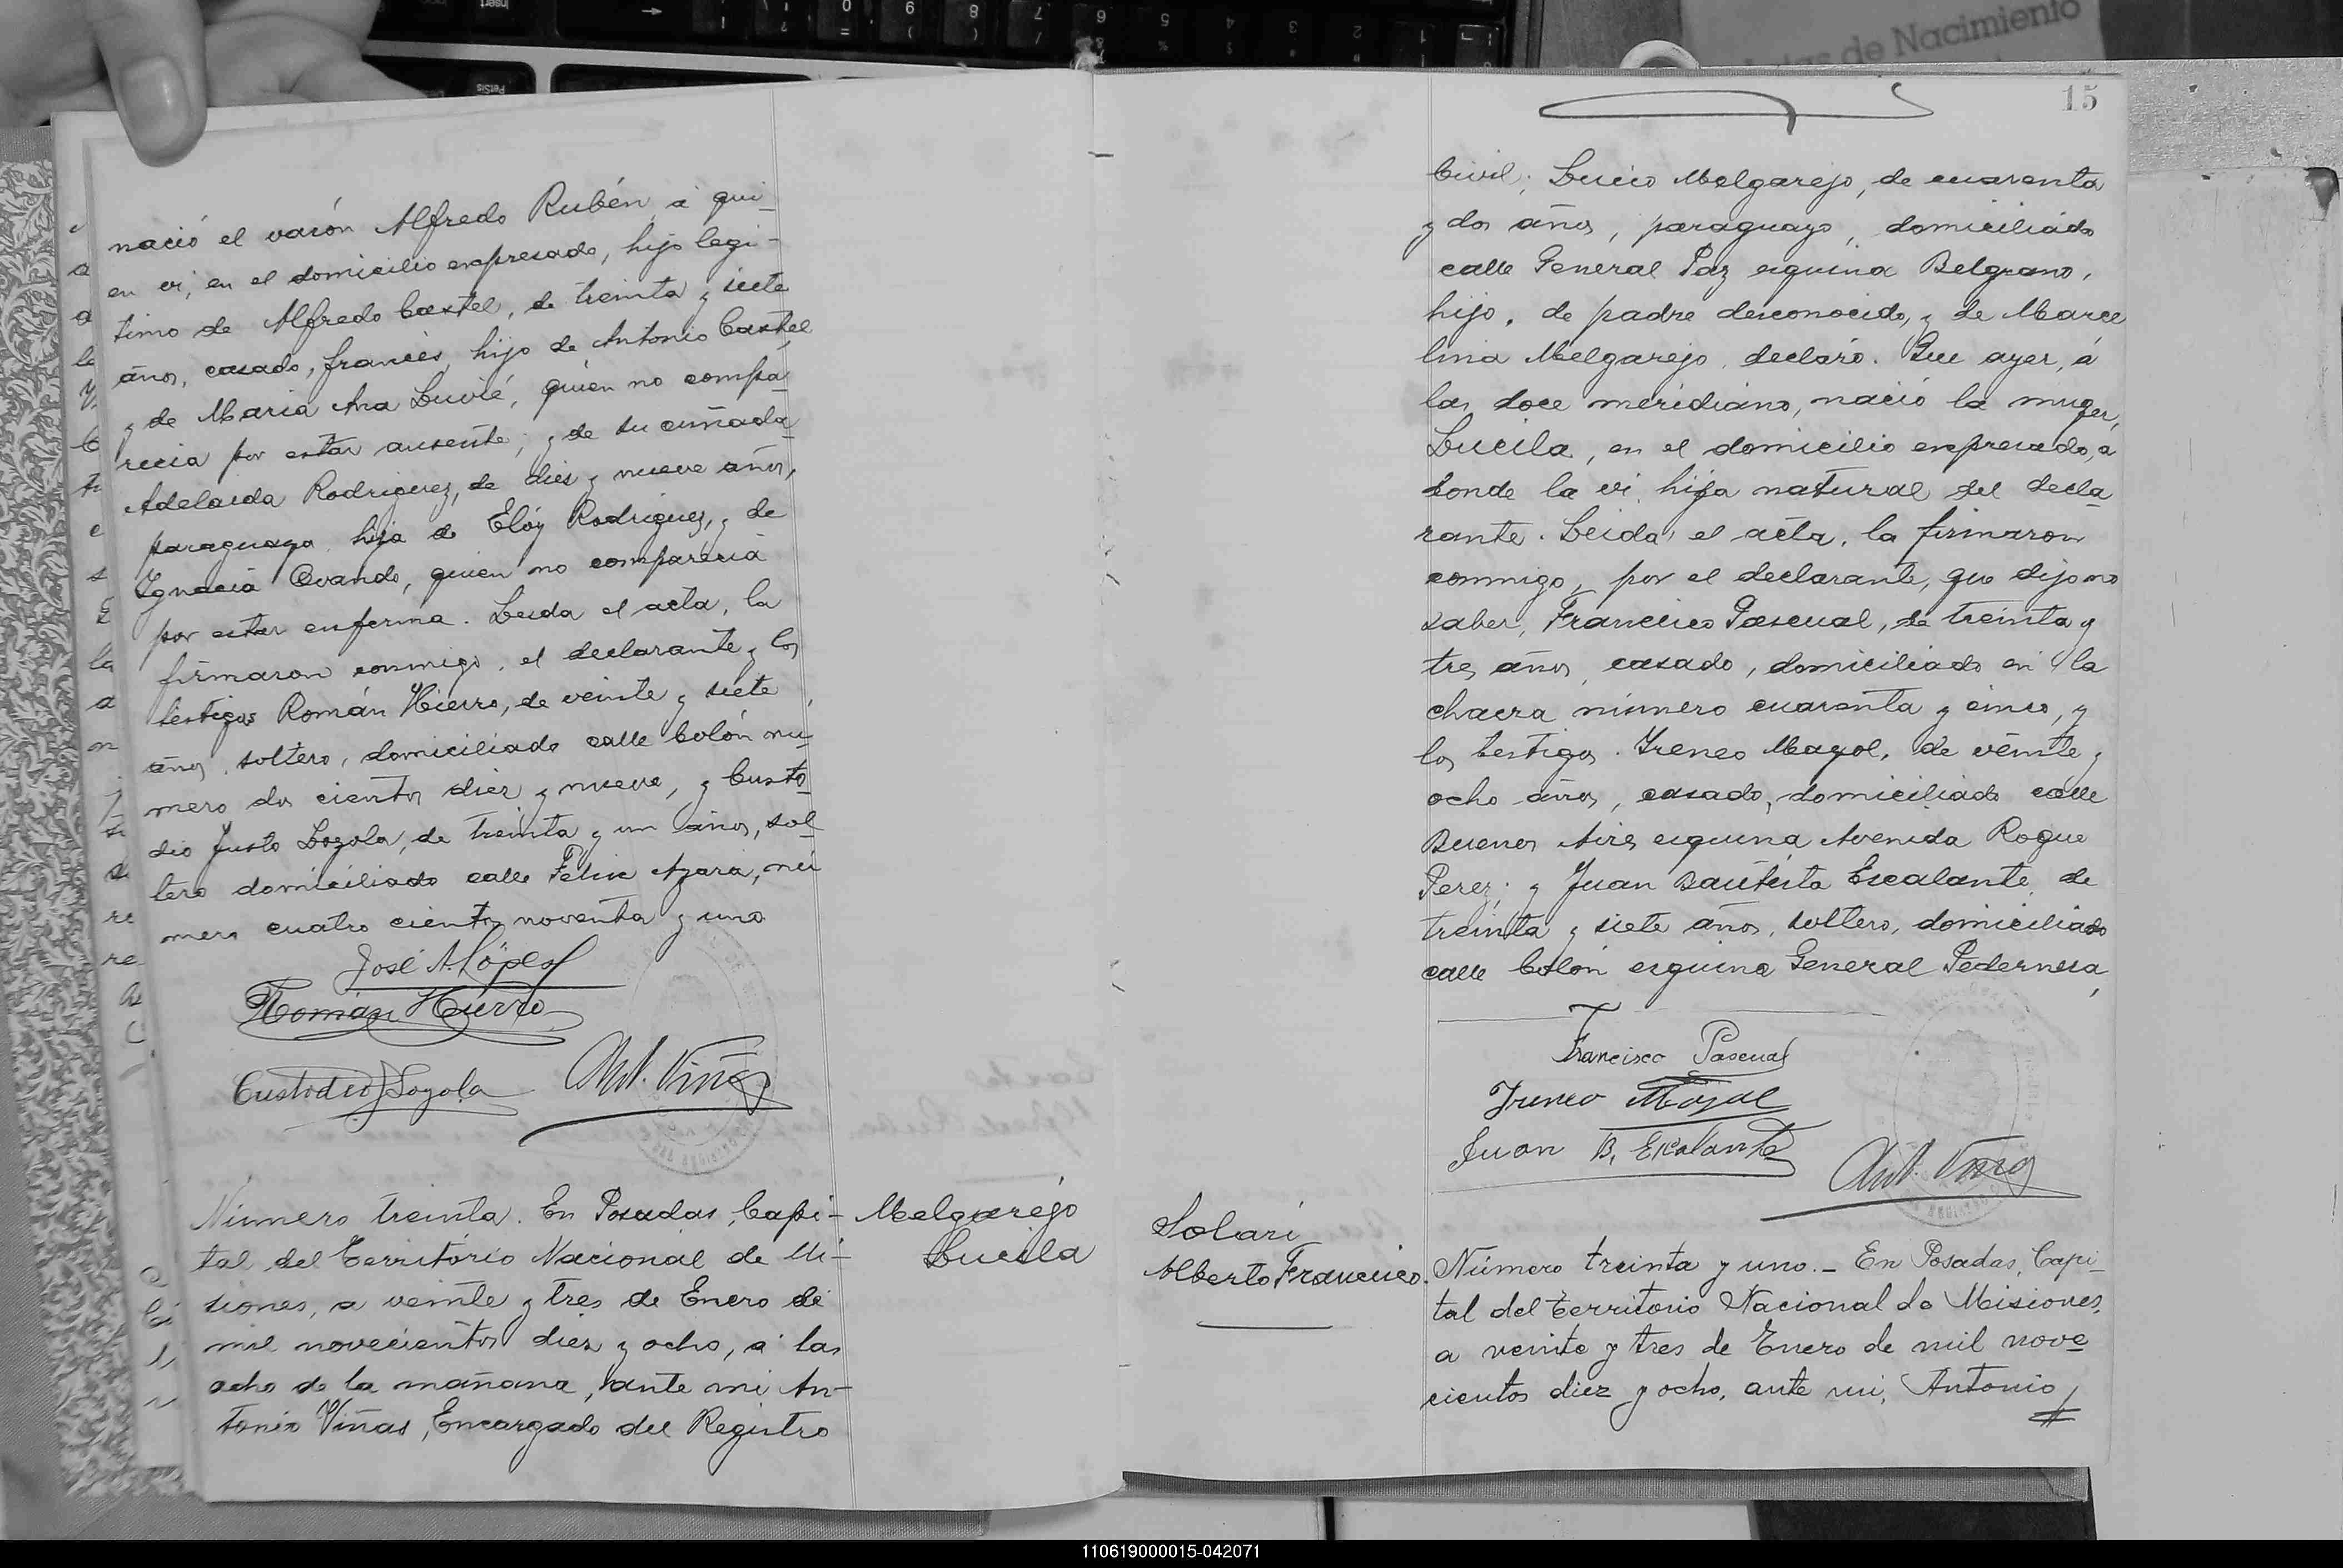 nació el varón Alfredo Rubén, á qui-
en vi, en el domicilio expresado, hijo legi-
timo de Alfredo Castel, de treinta y siete
años, casado, francés, hijo de Antonio Castel
y de Maria Ana Luvié, quien no compa-
recia por estar ausente; y de su cuñada
Adelaida Rodriguez, de dies y nueve años,
paraguaya, hija de Elóy Rodriguez, y de
Ignacia Ovando, quien no comparecia
por estar enferma. Leida el acta, la
firmaron conmigo, el declarante y los
testigos Román Hierro, de veinte y siete
años, soltero, domiciliado calle Colón nu-
mero dos cientos diez y nueve, y Custo-
dio Justo Loyola, de treinta y un años, sol-
tero domiciliado calle Felix Azara, nú-
mero cuatro cientos noventa y uno
José A. López
Román Hierro
Custodio J Loyola
Ant. Viñas
Número treinta. En Posadas, Capi-
tal del Territorio Nacional de Mi-
siones, a veinte y tres de Enero de
mil novecientos diez y ocho, a las
ocho de la mañana, ante mi An-
tonio Viñas, Encargado del Registro
Melgarejo
Lucila
15
Civil; Lucio Melgarejo, de cuarenta
y dos años, paraguayo, domiciliado
calle General Paz esquina Belgrano,
hijo, de padre desconocido, y de Marce
lina Melgarejo, declaró. Que ayer, á
las doce meridiano, nació la muger,
Lucila, en el domicilio expresado, a
donde la vi, hija natural del decla-
rante. Leida el acta, la firmaron
conmigo, por el declarante, que dijo no
saber, Francisco Pascual, de treinta y
tres años, casado, domiciliado en la
chacra número cuarenta y cinco, y
los testigos. Ireneo Mayol, de veinte y
ocho años, casado, domiciliado calle
Buenos Aires esquina Avenida Roque
Perez; y Juan Bautista Escalante, de
treinta y siete años, soltero, domiciliado
calle Colón esquina General Pedernera,
Francisco Pascual
Ireneo Mayol
Juan B. Escalante
Ant. Viñas
Solari
Alberto Francisco.
Número treinta y uno. - En Posadas, Capi-
tal del Territorio Nacional de Misiones,
a veinte y tres de Enero de mil nove
cientos diez y ocho, ante mi, Antonio
110619000015-042071